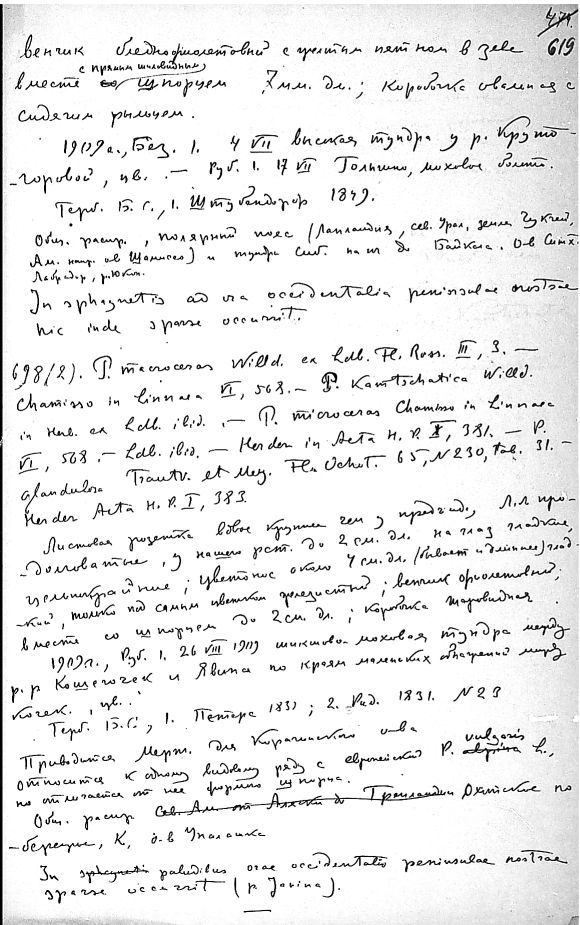 474
619
венчик бледнофиолетовый с желтым пятном в зеве
с прямым шиловидным
вместе со шпорцем 7 мм. дл.; коробочка овальная с
сидячим рыльцем.
1909 г., Без. 1. 4 VII высокая тундра у р. Круто-
-горовой, цв. — Руб. 1. 17 VII Голыгино, моховое болото.
Герб. Б. С., 1. Штубендорф 1849.
Общ. распр., полярный пояс (Лапландия, сев. Урал, земля Чукчей,
Ам. напр. ов Шамиссо) и тундра Сиб. на ю до Байкала. О-в Ситха
Лабрадор, р. Юкон.
In sphagnetis ad ora occidentalia peninsulae nostrae
hic inde sparse occurrit.
698(2). P. macroceras Willd. ex Ldb. Fl. Ross. III, 3. —
Chamisso in Linnaea VI, 568. — P. Kamtschatica Willd.
in Herb. ex Ldb. ibid. — P. microceras Chamisso in Linnaea
VI, 568. — Ldb. ibid. — Herder in Acta H. P. X, 381. — P.
glandulosa Trautv. et Mey. Fl. Ochot. 65, N 230, tab. 31. —
Herder Acta H. P. I, 383.
Листовая розетка вдвое крупнее чем у предыд., Л.л про-
-долговатые, у нашего раст. до 2 см. дл. на глаз гладкие,
цельнокрайние; цветонос около 4 см. дл. (бывает и длиннее) глад-
-кий, только под самым цветком железистый; венчик фиолетовый,
вместе со шпорцем до 2 см. дл.; коробочка шаровидная.
1909 г., Руб. 1. 26 VIII 1909 шикшово-моховая тундра между
р. р Кошегочек и Явина по краям маленьких обнажений между
кочек, цв.
Герб. Б. С., 1. Петерс 1831; 2. Рид. 1831. N 23
Приводится Мерт. для Карагинского о-ва
относится к одному видовому ряду с европейской P. alpina vulgaris L.,
но отличается от нее формою шпорца.
Общ. распр. Сев. Ам. от Аляски до Гренландии Охотское по
-бережие, К, о-в Уналашка
In sphagnetis paludibus orae occidentalis peninsulae nostrae
sparse occurrit (p. Javina).